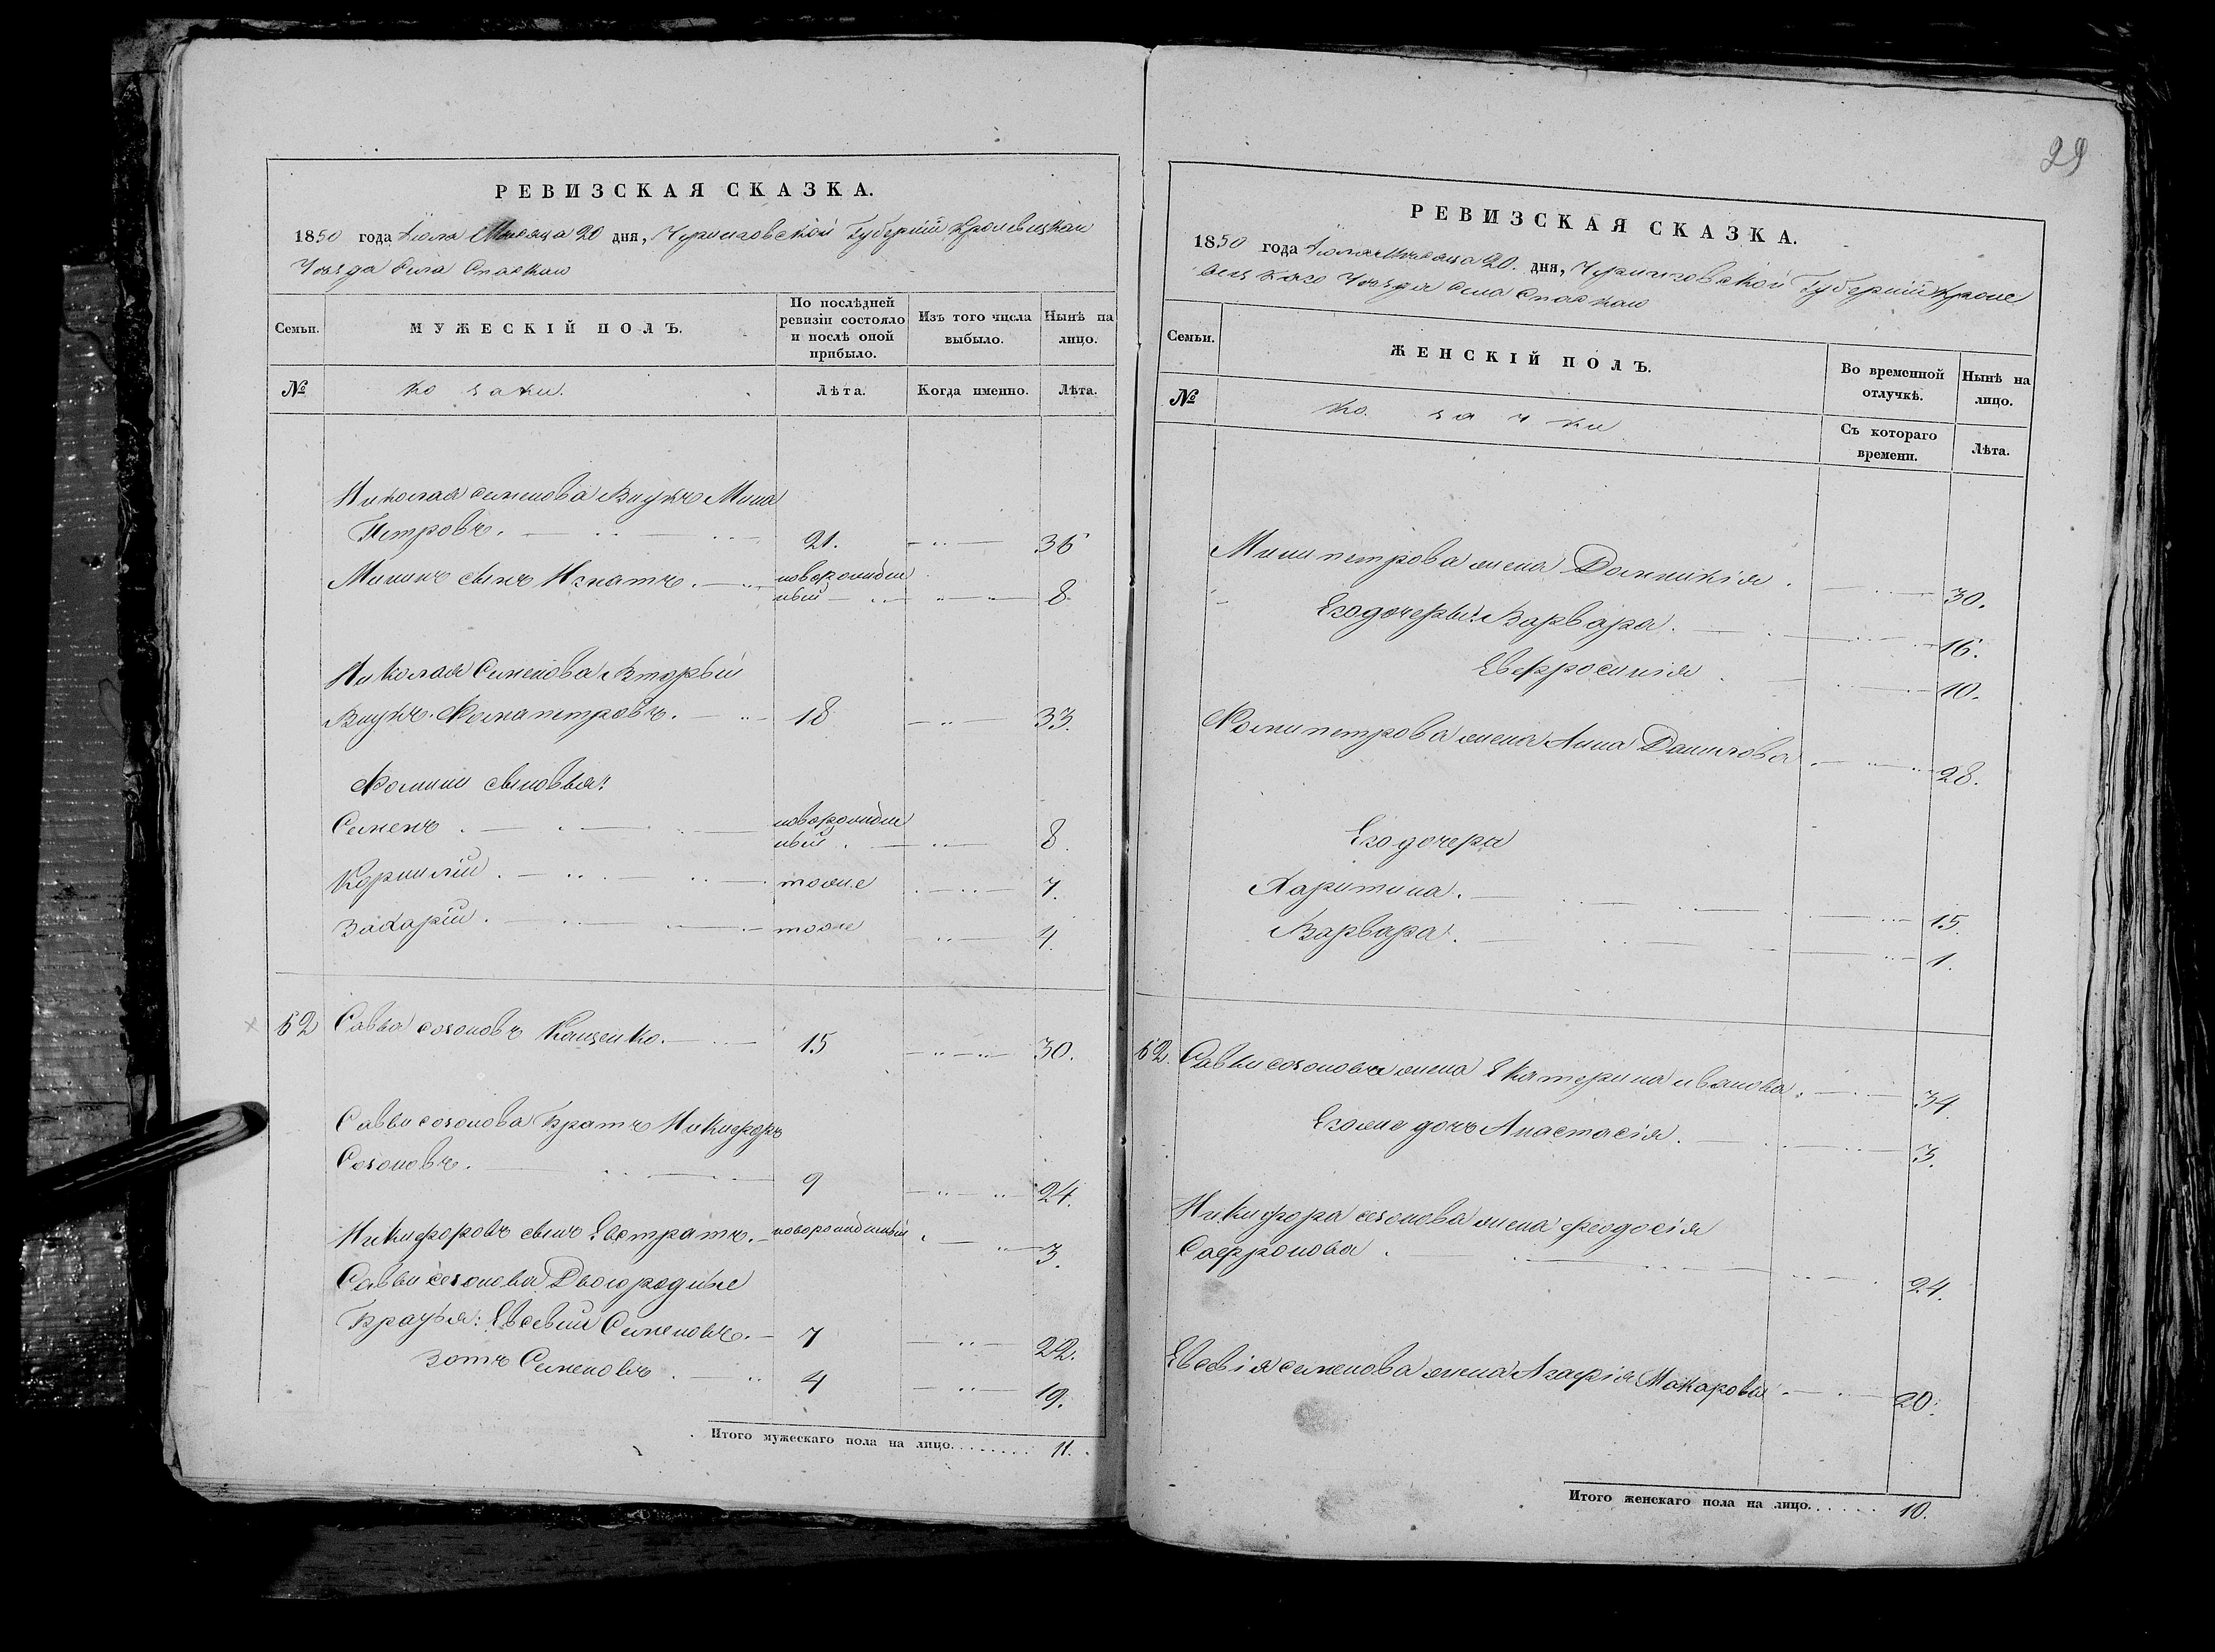 РЕВИЗСКАЯ СКАЗКА.
1850 года Июля Месяца 20 дня, Черниговской Губерніи Кролевецкаго
Уезда Села Спаскаго
Семьи.
МУЖЕСКІЙ ПОЛЪ.
По послѣдней ревизіи состояло и послѣ оной прибыло.
Изъ того числа выбыло.
Нынѣ на лицо.
№
ко заки.
Лѣта.
Когда именно.
Лѣта.
Николая Семенова Внукъ Мина
Петровъ. 21. 36
Мининъ сынъ Игнатъ. новорожден
ный 8
Николая Семенова Вторый
Внукъ Фома петровъ. 18 33.
Фомины сыновья:
Семенъ новорожден
ный 8.
Корнилій. тоже 7.
Захарій. тоже 4.
62 Савва созоновъ Кащенко. 15 30.
Саввы созонова Братъ Никифоръ
Созоновъ. 9 24.
Никифоровъ сынъ Евстратъ. новорожденный 3.
Саввы созонова Двоюродные
Братья: Евсевій Семеновъ. 7 22.
Зотъ Семеновъ 4 19.
Итого мужескаго пола на лицо........ 11.
29
РЕВИЗСКАЯ СКАЗКА.
1850 года Июля Месяца 20. дня, Черниговской Губерніи Кроле
вецкаго Уезда Села Спаскаго
Семьи.
ЖЕНСКІЙ ПОЛЪ.
Во временной отлучкѣ.
Нынѣ на лицо.
№
ко за ч ки
Съ котораго времени.
Лѣта.
Мины петрова жена Домникія. 30.
Его дочеры: Варвара. 16.
Евфросинія 10.
Фомы петрова жена Анна Данилова. 28.
Его дочери
Харитина. 15.
Варвара. 1.
62. Саввы созонова жена Екатерина иванова. 34.
Егоже дочь Анастасія. 3.
Никифора созонова жена феодосія
Сафронова. 24.
Евсевія семенова жена Агафія Макарова. 20.
Итого женскаго пола на лицо...... 10.